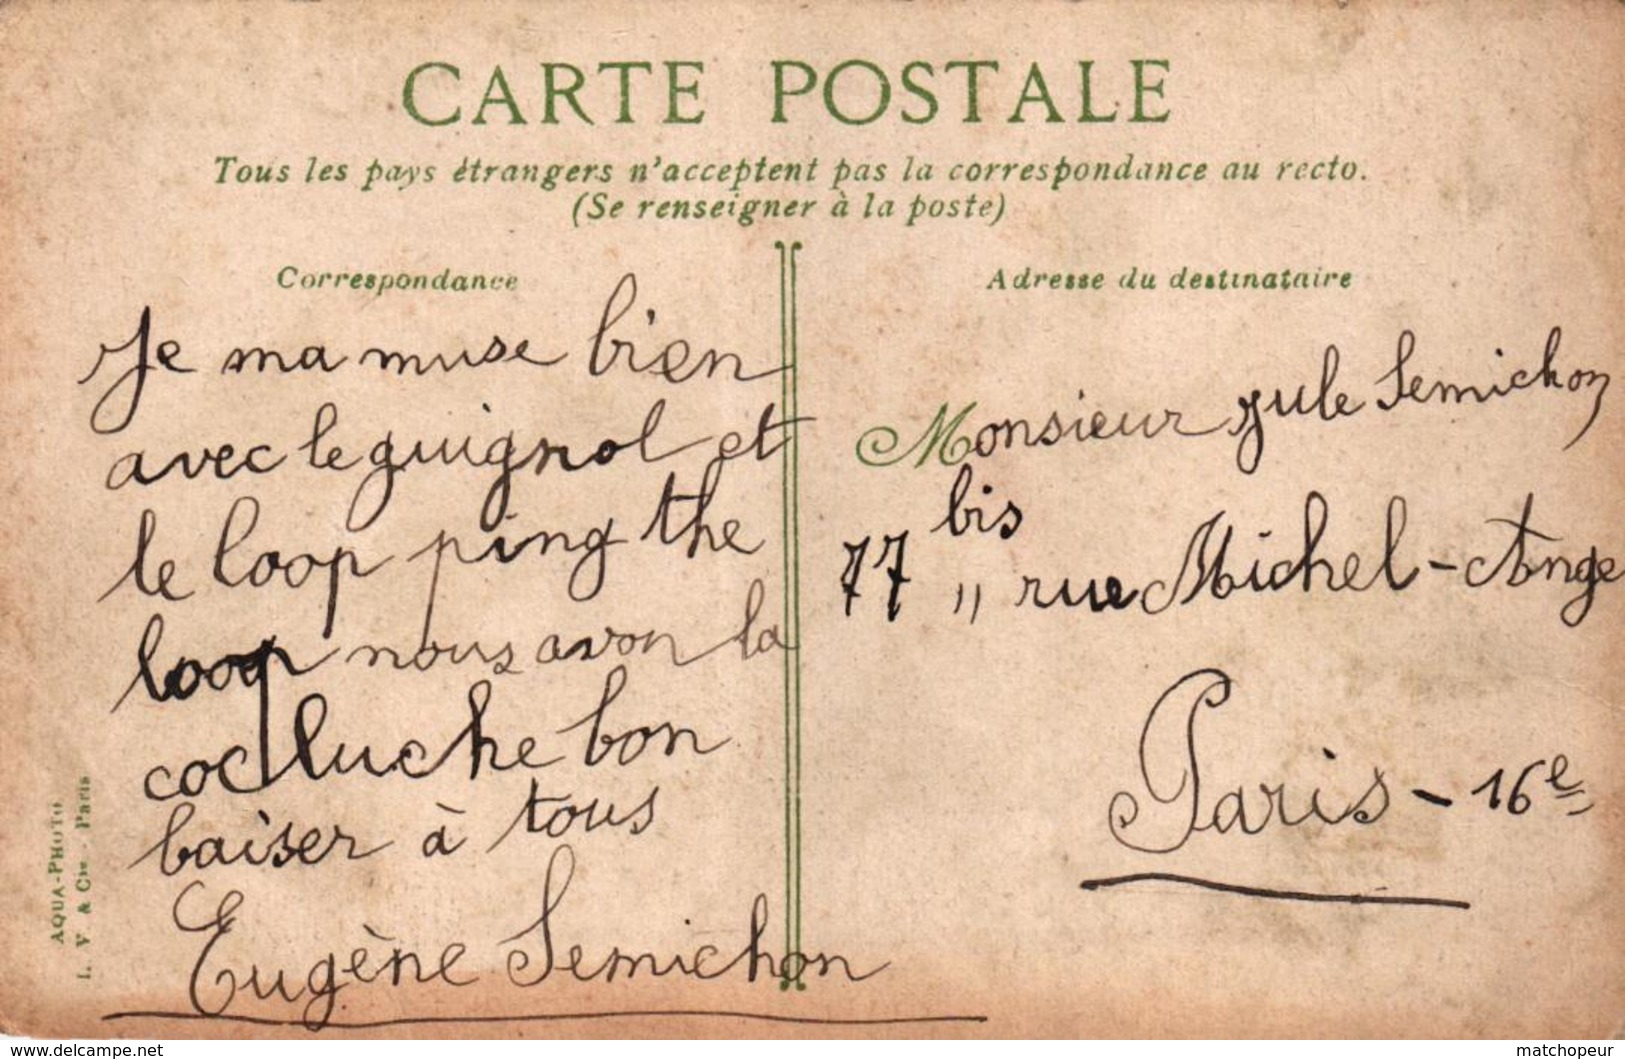 CARTE POSTALE
Tous les pays étrangers n'acceptent pas la correspondance au recto.
(Se renseigner à la poste)
Correspondance
Je ma muse bien
avec le guignol et
le loop ping the
loop nous avon la
cocluche bon
baiser à tous
Eugène Semichon
Adresse du destinataire
Monsieur jule Semichon
77 bis " rue Michel-Ange
Paris - 16e
AQUA-PHOTO
L. V & Cie - Paris
www.delcampe.net
matchopeur